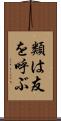 類は友
を呼ぶ